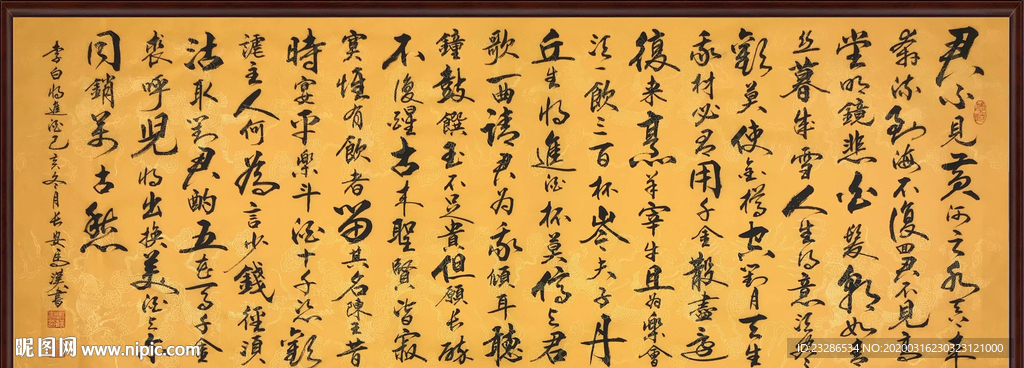 君不見黃河之水天上来
奔流到海不復回君不見高
堂明鏡悲白髮朝如青
丝暮成雪人生得意須盡
歡莫使金樽空對月天生
我材必有用千金散盡還
復来烹羊宰牛且为樂會
須一飲三百杯岑夫子丹
丘生将進酒杯莫停与君
歌一曲請君为我傾耳聽
鐘鼓饌玉不足貴但願长醉
不復醒古来聖賢皆寂
寞惟有飲者留其名陳王昔
時宴平樂斗酒十千恣歡
謔主人何為言少錢徑須
沽取對君酌五花馬千金
裘呼兒将出換美酒与尔
同銷萬古愁
李白将進酒己亥冬月长安馬漢書
昵图网 www.nipic.com
ID:23286534 NO:20200316230323121000